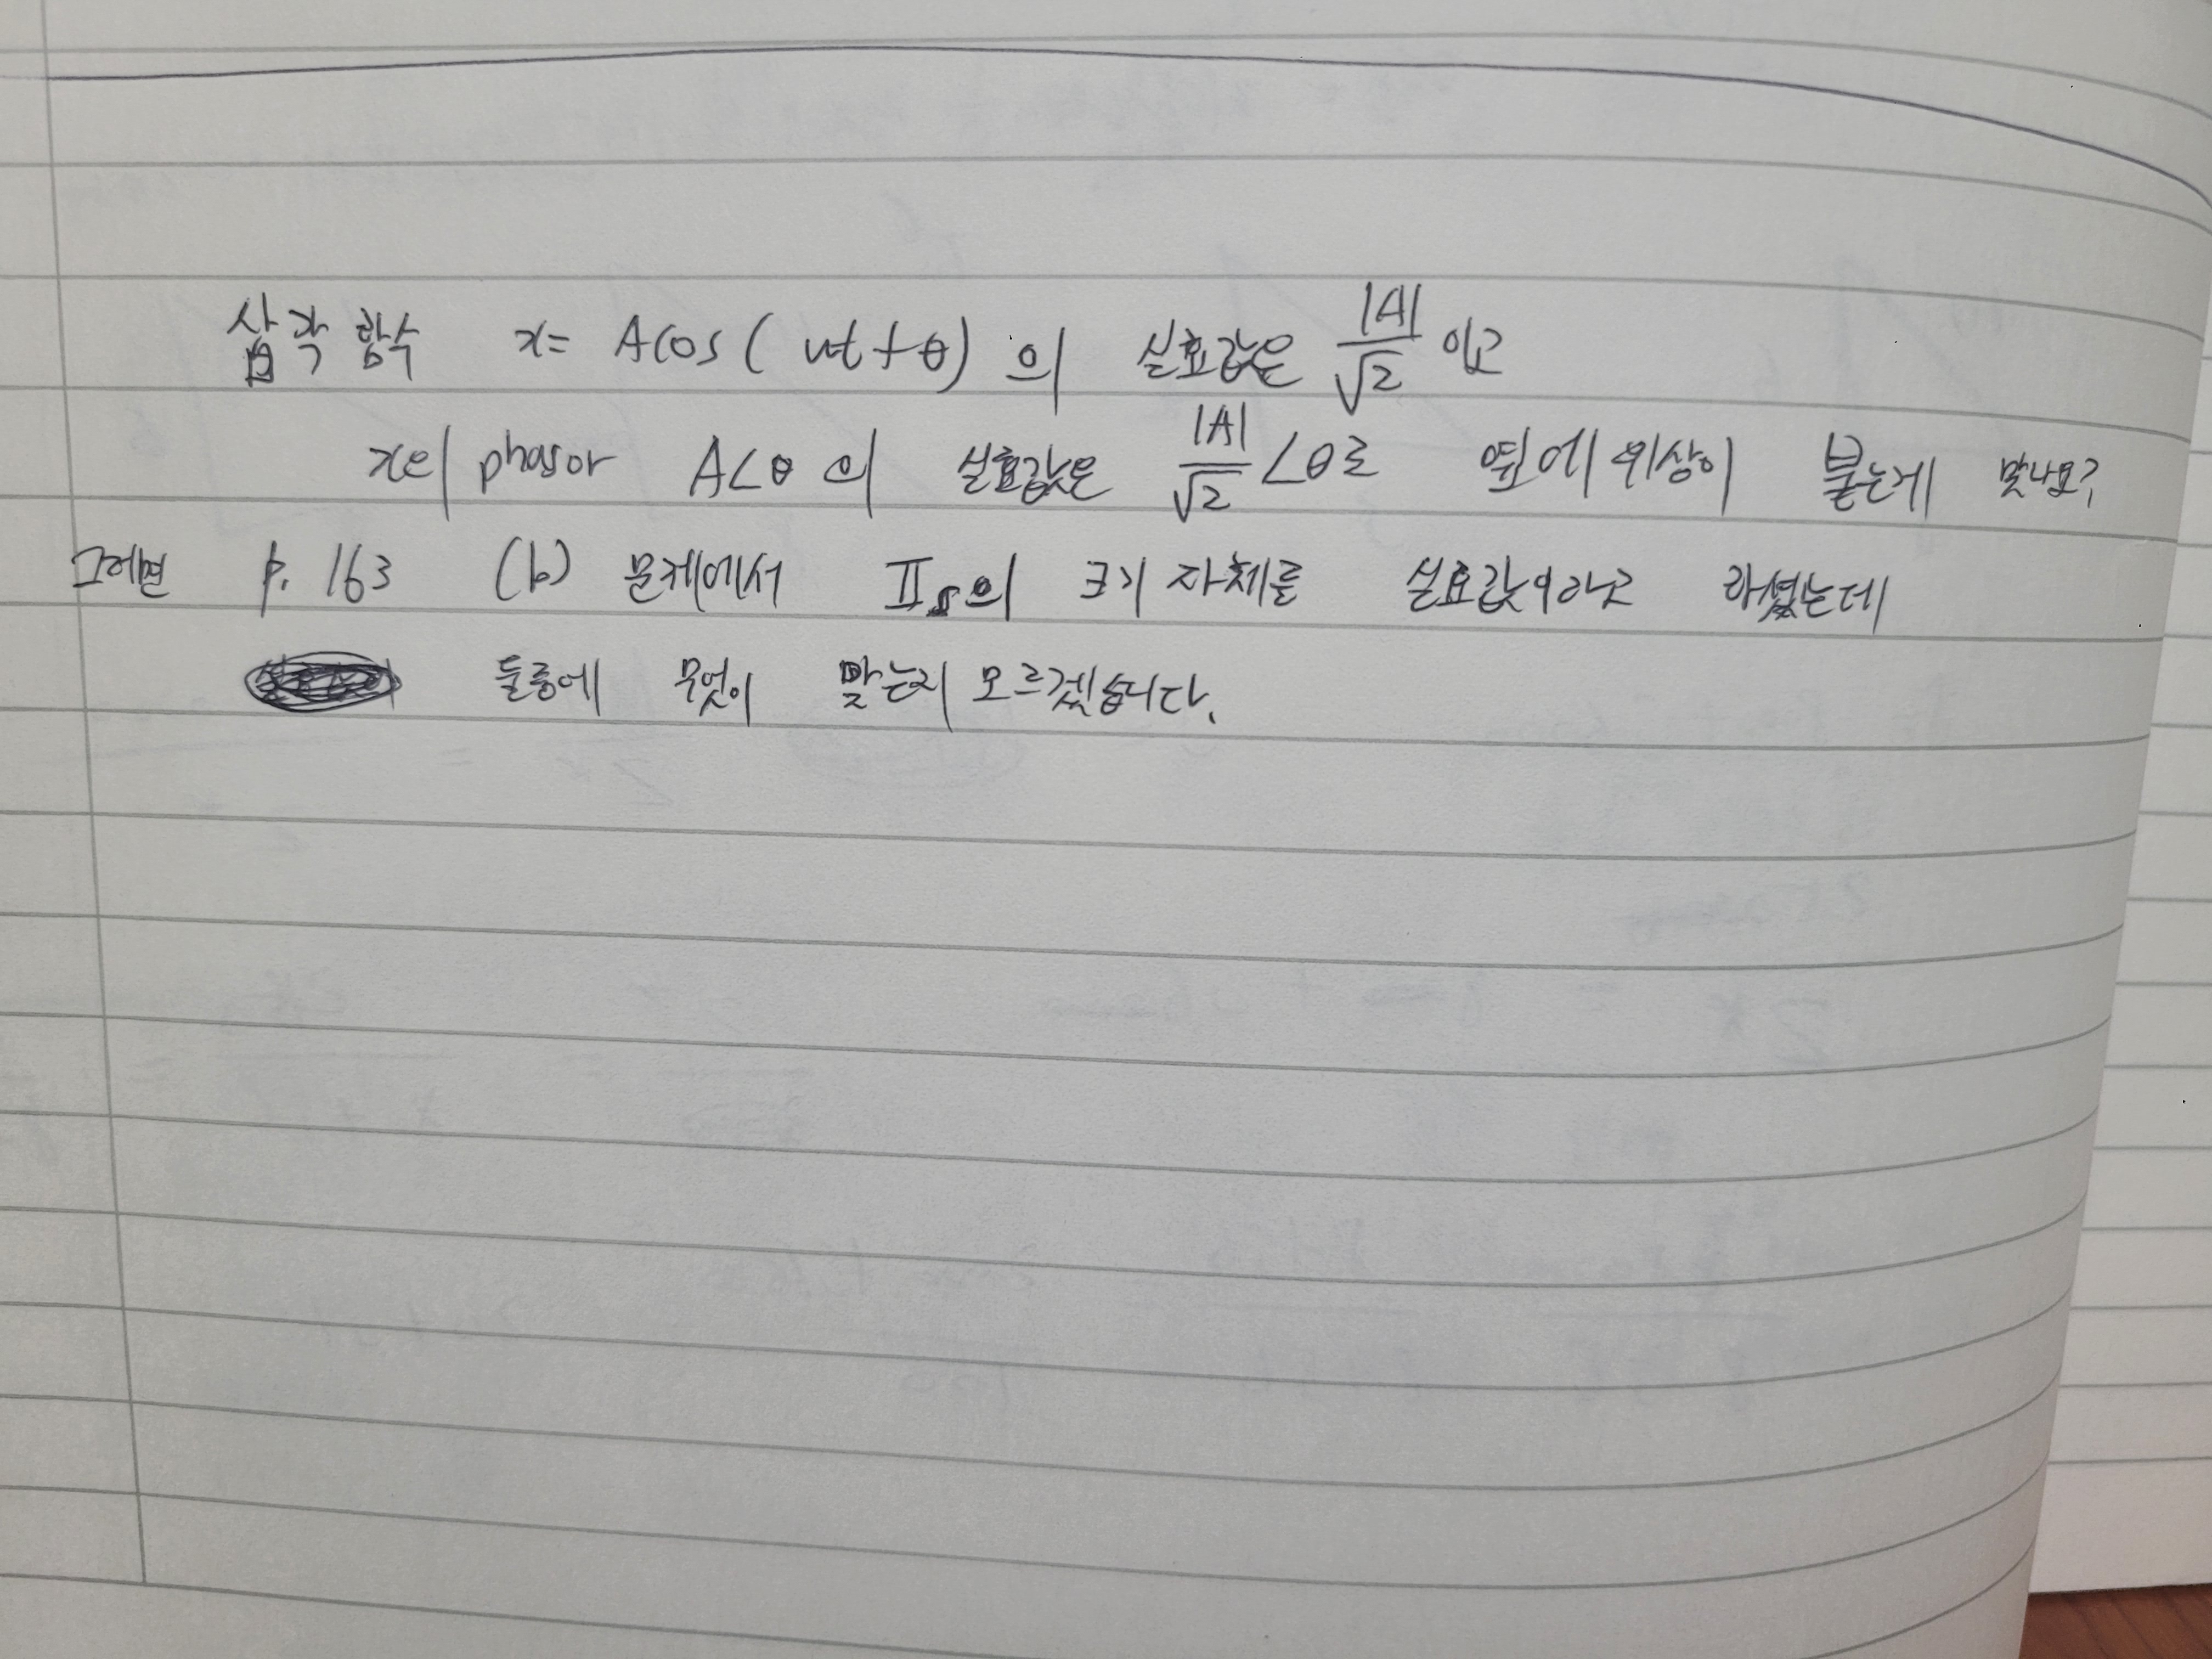 삼각 함수 x= Acos( wt+θ) 의 실효값은 |A|/√2 이고
x의 phasor A∠θ 의 실효값은 |A|/√2 ∠θ로 옆에 위상이 붙는게 맞나요?
그러면 p. 163 (b) 문제에서 II_s의 크기 자체를 실효값이라고 하셨는데
둘중에 무엇이 맞는지 모르겠습니다.